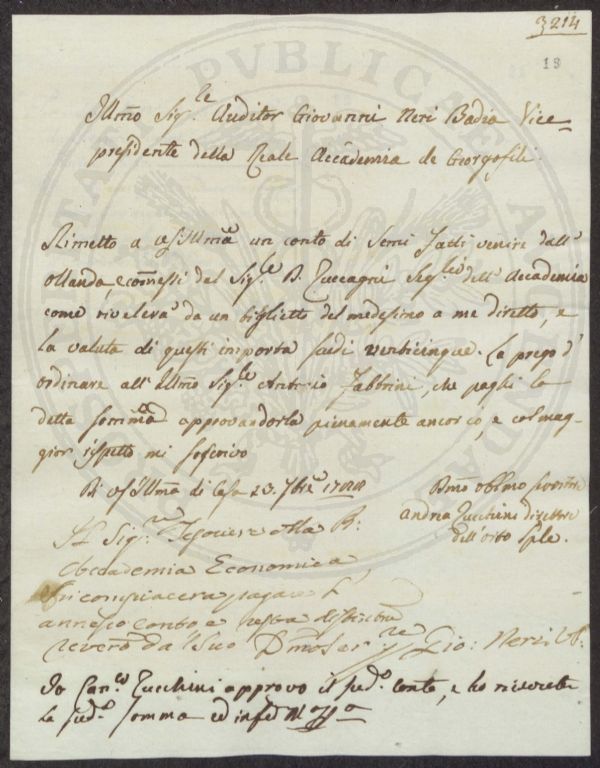 3214
13
Illmo Sig.le Auditor Giovanni Neri Badia Vice=
presidente della Reale Accademia de Georgofili
Rimetto a un conto di Semi fatti venire dall'
Ollanda, e commessi dal Sig.le D. Zuccagni Seg.rio dell'Accademia
come rivelerà da un biglietto del medesimo a me diretto, e
la valuta di questi importa scudi venticinque. La prego d'
ordinare all'Illmo Sig.le Antonio Fabbrini, che paghi la
detta somma approvandola pienamente ancor io, e col mag-
gior rispetto mi soscrivo
Di Illma di Casa 23. 7bre
Andrea Zucchini Direttore
dell'orto Sple.
Il Sig.r Tesoriere della R:
Accademia Economica
si compiacerà pagare l'
annesso conto e resta
da Suo Gio: Neri
Io Can.co Zucchini approvo il sud.o conto, e ho ricevuto
la sud.a somma ed in fede M.o pp.a